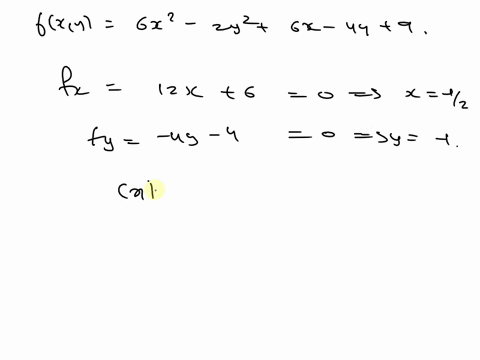 f(x,y) = 6x² - 2y² + 6x - 4y + 9.
fx = 12x + 6 = 0 => x = -1/2
fy = -4y - 4 = 0 => y = -1.
(x)